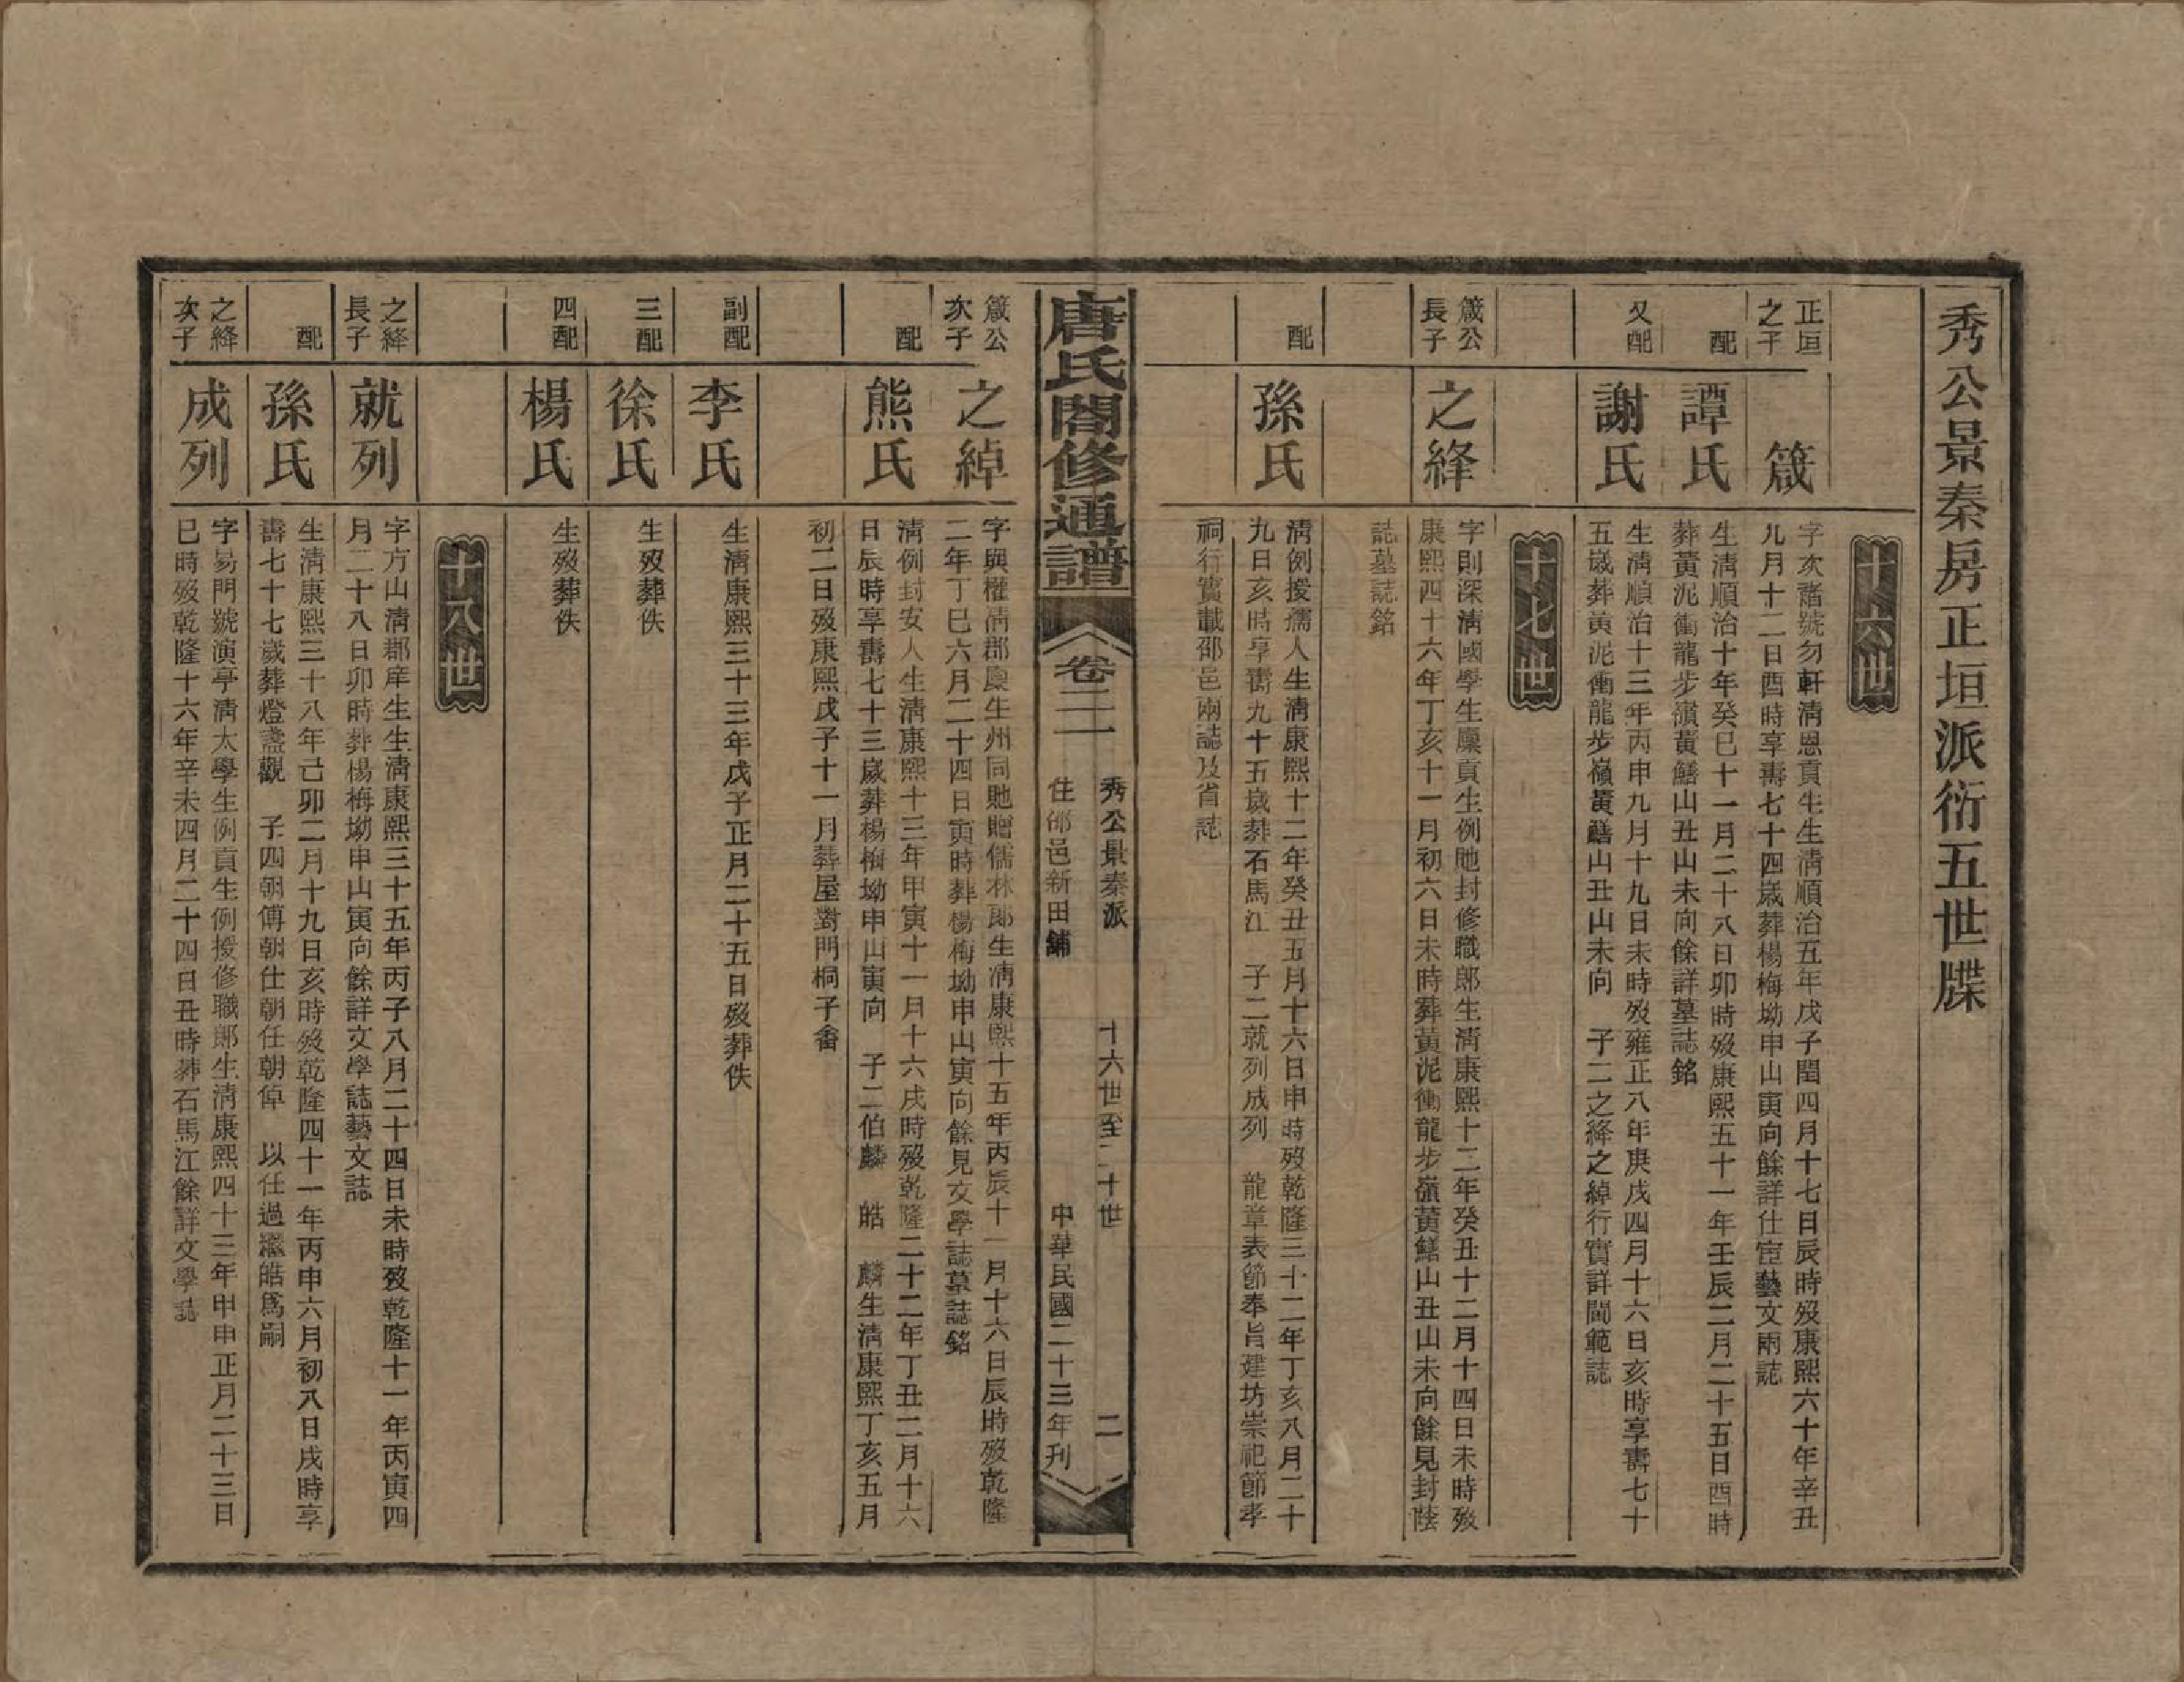 秀公景秦房正垣派衍五世牒
十六世
正垣
之子
箴
字次諸號勿軒清恩貢生生清順治五年戊子閏四月十七日辰時歿康熙六十年辛丑
九月十二日酉時享壽七十四歲葬楊梅坳申山寅向餘詳仕宦藝文兩誌
配
譚氏
生清順治十年癸巳十一月二十八日卯時歿康熙五十一年壬辰二月二十五日酉時
葬黃泥衝龍步嶺黃鱔山丑山未向餘詳墓誌銘
又配
謝氏
生清順治十三年丙申九月十九日未時歿雍正八年庚戌四月十六日亥時享壽七十
五歲葬黃泥衝龍步嶺黃鱔山丑山未向　子二之絳之綽行實詳閫範誌
十七世
箴公
長子
之絳
字則深清國學生廩貢生例貤封修職郎生清康熙十二年癸丑十二月十四日未時歿
康熙四十六年丁亥十一月初六日未時葬黃泥衝龍步嶺黃鱔山丑山未向餘見封蔭
誌墓誌銘
配
孫氏
清例授孺人生清康熙十二年癸丑五月十六日申時歿乾隆三十二年丁亥八月二十
九日亥時享壽九十五歲葬石馬江　子二就列成列　龍章表節奉旨建坊崇祀節孝
祠行實載邵邑兩誌及省誌
唐氏閤修通譜
卷二二
秀公景秦派
住邵邑新田鋪
十六世至二十世
中華民國二十三年刊
二
箴公
次子
之綽
字與權清郡廩生州同貤贈儒林郎生清康熙十五年丙辰十一月十六日辰時歿乾隆
二年丁巳六月二十四日寅時葬楊梅坳申山寅向餘見文學誌墓誌銘
配
熊氏
清例封安人生清康熙十三年甲寅十一月十六戌時歿乾隆二十二年丁丑二月十六
日辰時享壽七十三歲葬楊梅坳申山寅向　子二伯麟　皓　麟生清康熙丁亥五月
初二日歿康熙戊子十一月葬屋對門桐子畬
副配
李氏
生清康熙三十三年戊子正月二十五日歿葬佚
三配
徐氏
生歿葬佚
四配
楊氏
生歿葬佚
十八世
之絳
長子
就列
字方山清郡庠生生清康熙三十五年丙子八月二十四日未時歿乾隆十一年丙寅四
月二十八日卯時葬楊梅坳申山寅向餘詳文學誌藝文誌
配
孫氏
生清康熙三十八年己卯二月十九日亥時歿乾隆四十一年丙申六月初八日戌時享
壽七十七歲葬燈盞觀　子四朝傅朝仕朝任朝倬　以任過繼皓爲嗣
之絳
次子
成列
字易門號演亭清太學生例貢生例授修職郎生清康熙四十三年甲申正月二十三日
巳時歿乾隆十六年辛未四月二十四日丑時葬石馬江餘詳文學誌